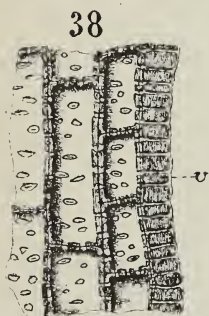 38
v